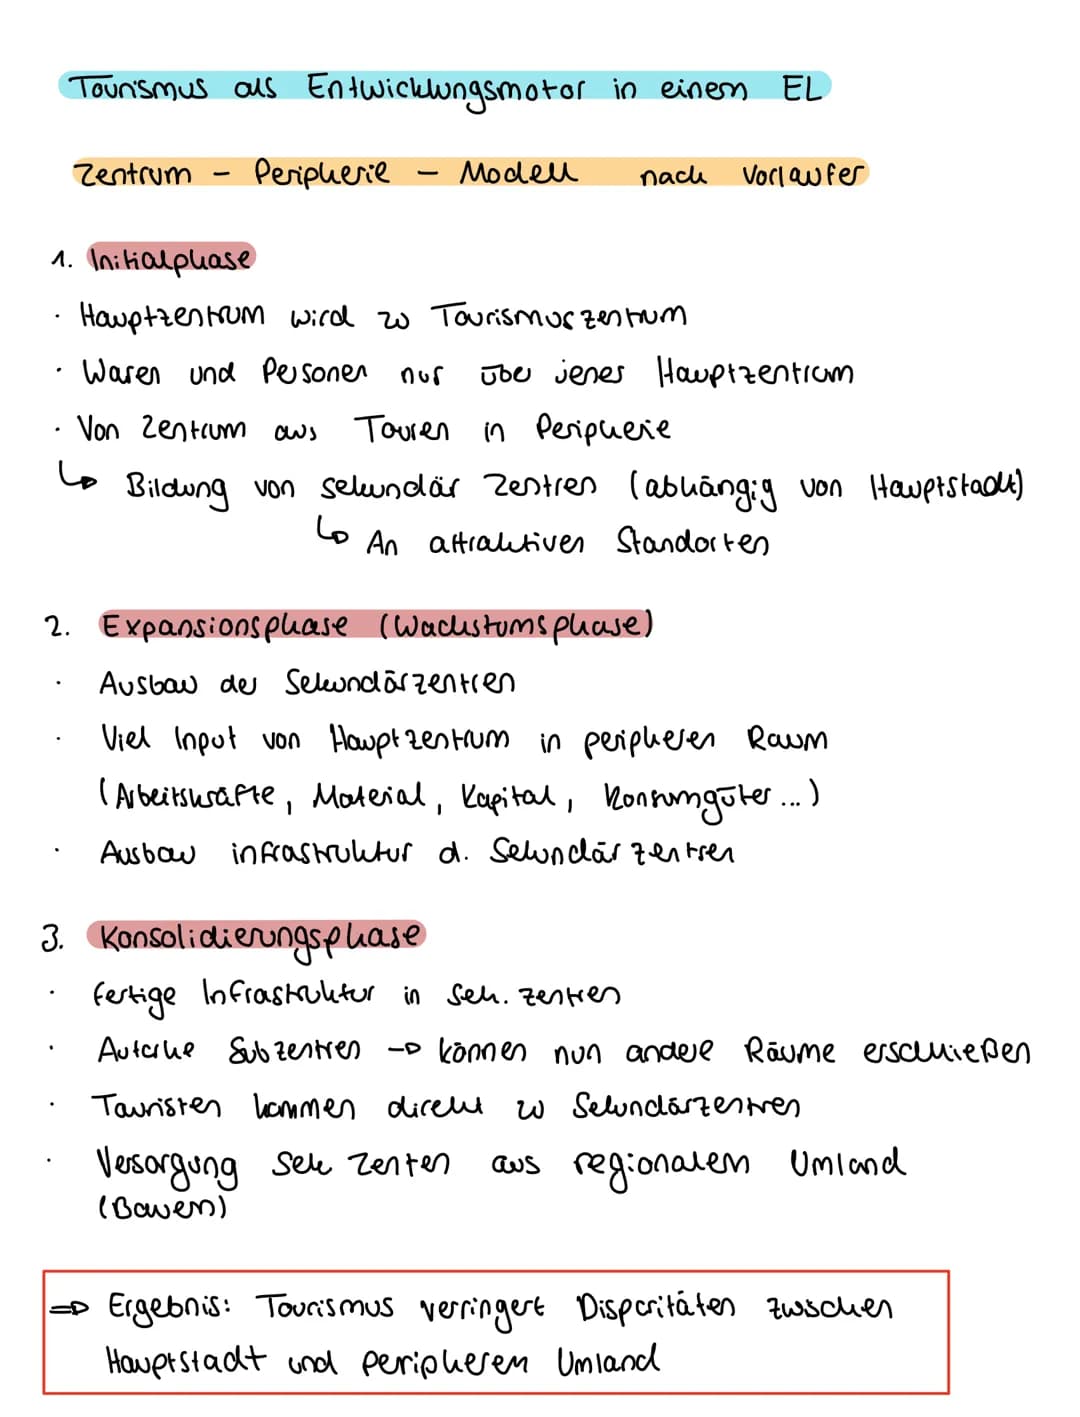 Tourismus als Entwicklungsmotor in einem EL
Zentrum - Peripherie - Modell nach Vorlaufer
1. Initialphase
· Hauptzentrum wird zu Tourismuszentrum
· Waren und Personen nur über jenes Hauptzentrum
· Von Zentrum aus Touren in Peripherie
↳ Bildung von sekundär Zentren (abhängig von Hauptstadt)
↳ An attraktiven Standorten
2. Expansionsphase (Wachstumsphase)
· Ausbau der Sekundärzentren
· Viel Input von Hauptzentrum in peripheren Raum
(Arbeitskräfte, Material, Kapital, Konsumgüter...)
· Ausbau infrastruktur d. Sekundärzentren
3. Konsolidierungsphase
· fertige Infrastruktur in sek. zentren
· Autarke Subzentren → können nun andere Räume erschließen
· Touristen kommen direkt zu Sekundärzentren
· Versorgung Sek Zenten aus regionalem Umland
(Bauern)
⇒ Ergebnis: Tourismus verringert Disparitäten zwschen
Hauptstadt und peripherem Umland